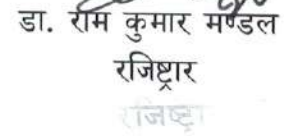 डा. राम कुमार मण्डल
रजिष्ट्रार
रजिष्ट्रा